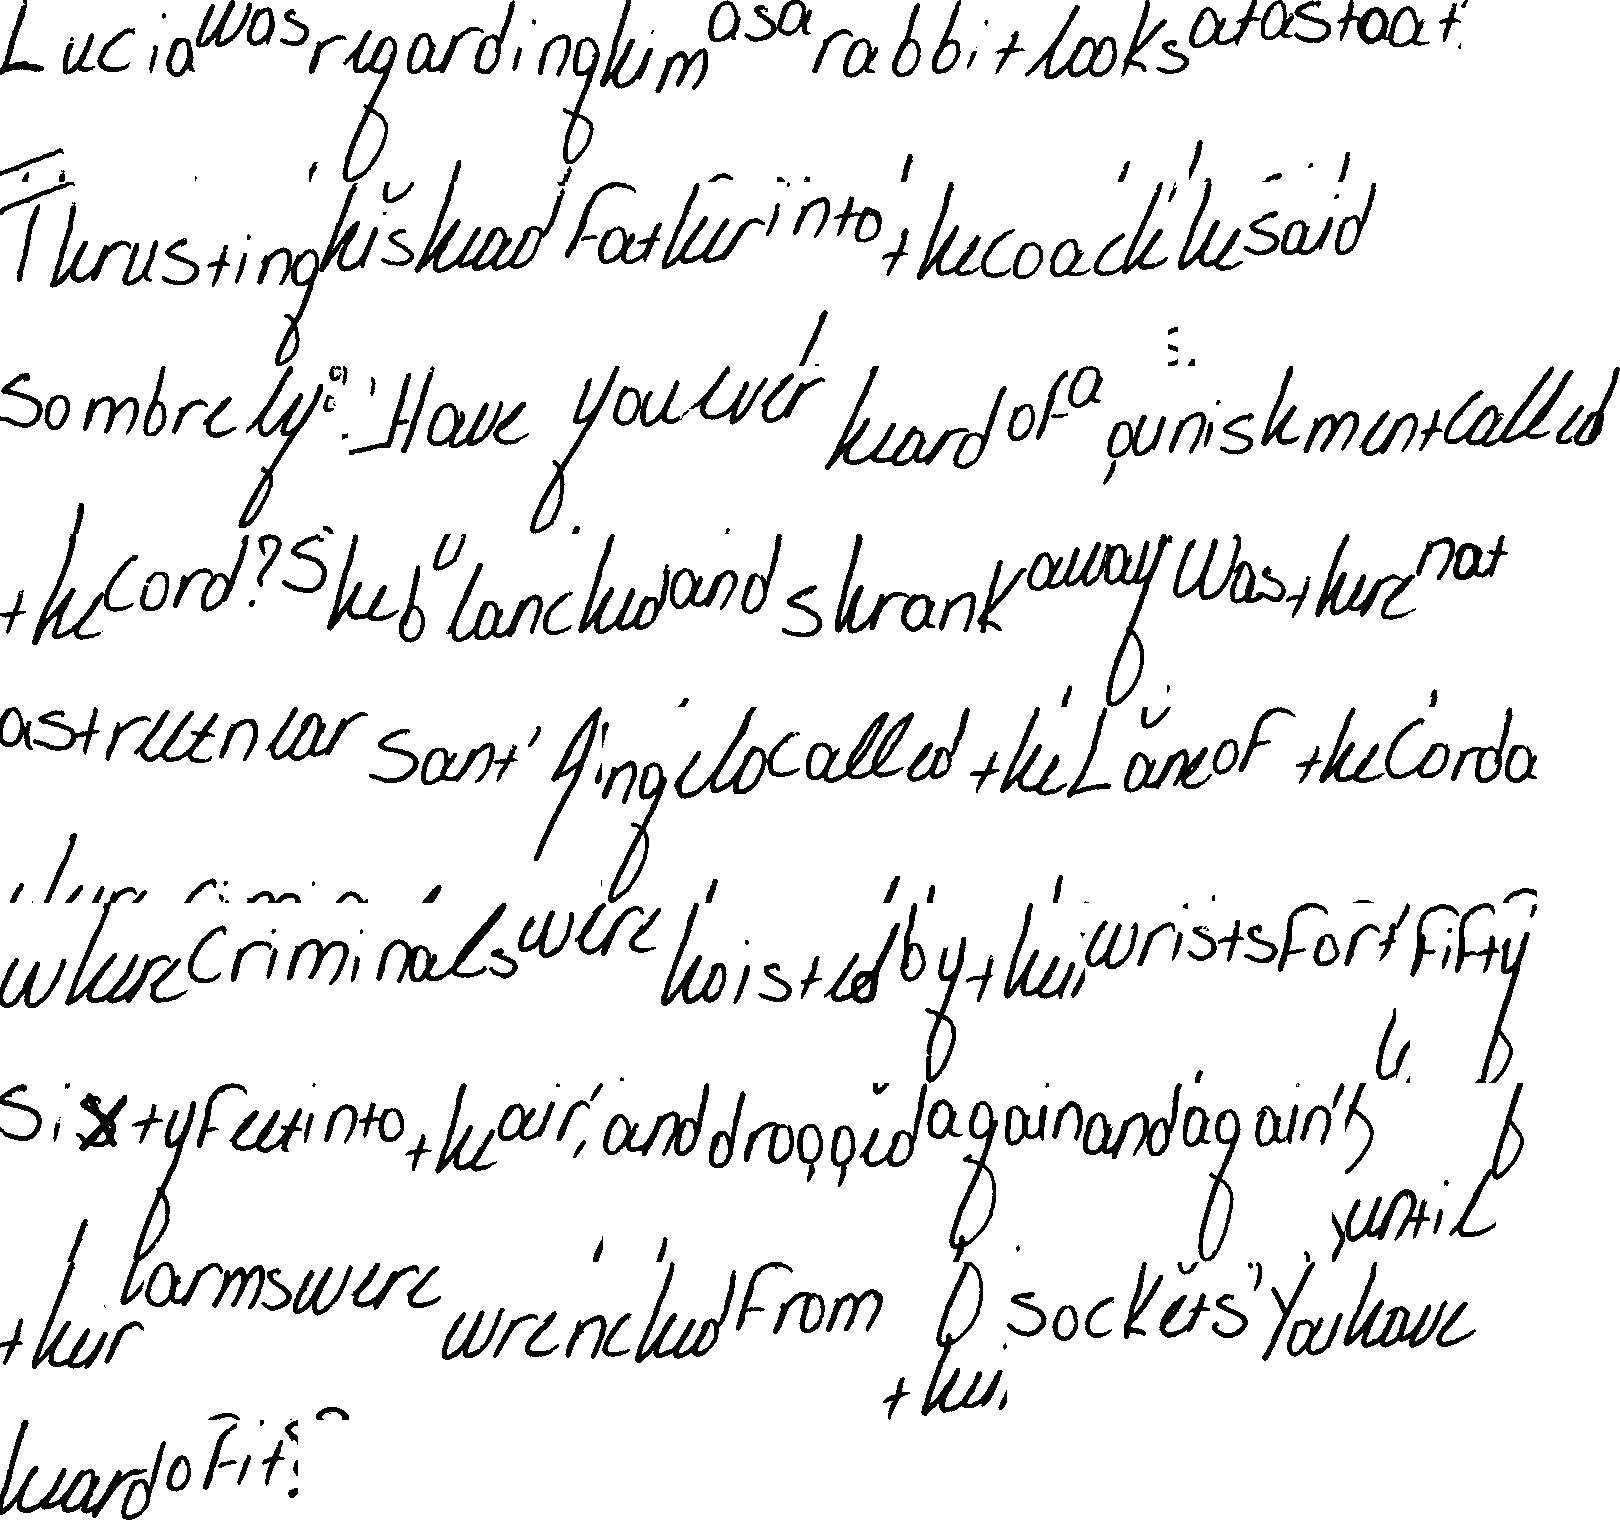 Lucia was regarding him as a rabbit looks at a stoat.
Thrusting his head father into the coach he said
sombrely: 'Have you ever heard of a punishment called
the cord? She blanched and shrank away Was there not
a street near Sant' Angelo called the Lane of the Corda
where criminals were hoisted by their wrists forty fifty
sixty feet into the air, and dropped again and again, until
their arms were wrenched from their sockets' You have
heard of it?